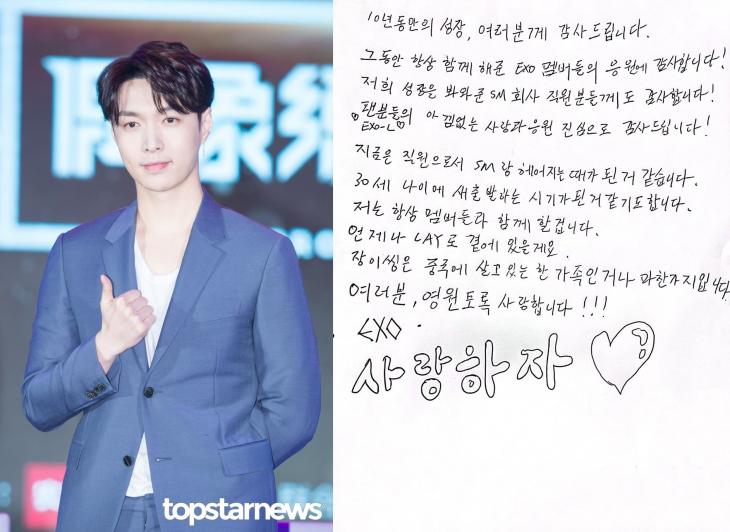 偶像
topstarnews
10년동안의 성장, 여러분께 감사드립니다.
그동안 항상 함께 해준 EXO 멤버들의 응원에 감사합니다!
저희 성장은 봐와준 SM 회사 직원분들께도 감사합니다!
팬분들의 아낌없는 사랑과응원 진심으로 감사드립니다!
EXO-L
지금은 직원으로서 SM랑 헤어지는때가 된거 같습니다.
30세 나이에 새출발하는 시기가된거같기도합니다.
저는 항상 멤버들과 함께 할겁니다.
언제나 LAY로 곁에 있을게요.
장이씽은 중국에 살고있는 한 가족인거나 마찬가지입니다
여러분, 영원토록 사랑합니다!!!
EXO.
사랑하자